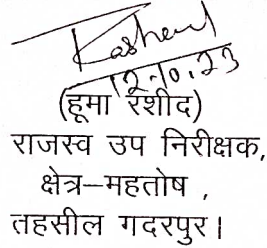 Rasheed
12.10.23
(हूमा रशीद)
राजस्व उप निरीक्षक,
क्षेत्र–महतोष ,
तहसील गदरपुर।